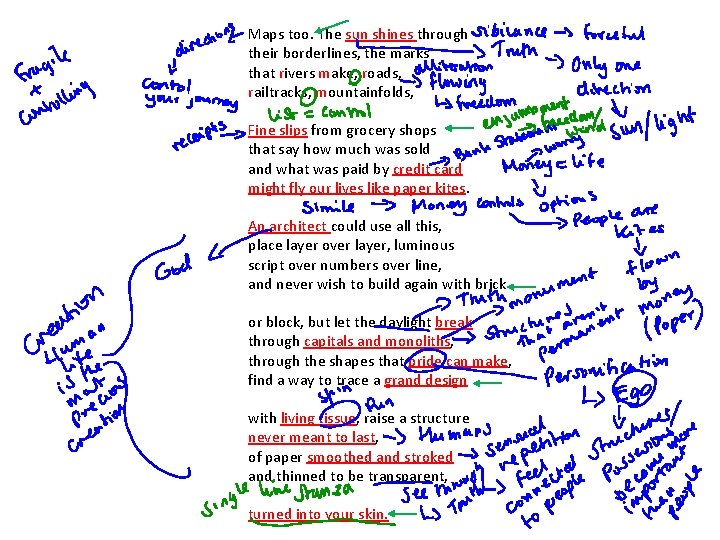 Maps too. The sun shines through
their borderlines, the marks
that rivers make, roads,
railtracks, mountainfolds,
Fine slips from grocery shops
that say how much was sold
and what was paid by credit card
might fly our lives like paper kites.
An architect could use all this,
place layer over layer, luminous
script over numbers over line,
and never wish to build again with brick
or block, but let the daylight break
through capitals and monoliths,
through the shapes that pride can make,
find a way to trace a grand design
with living tissue, raise a structure
never meant to last,
of paper smoothed and stroked
and thinned to be transparent,
turned into your skin.
Fragile
+
controlling
directions
control
your journey
sibilance → forceful
Truth
alliteration
flowing
freedom
Only one
direction
Sun/light
List = control
enjambment
freedom/
wind
receipts
Bank statement
money
Money = life
Simile → Money controls options
People are
kites
flown
by
money
(paper)
God
Creation
Human
life
is the
most
precious
creation
Truth
monument
structures
that aren't
permanent
Personification
Ego
skin
Humans
sensual
repetition
feel
connected
to people
structures/
possessions
become more
important
than
people
See through
Truth
Single line stanza